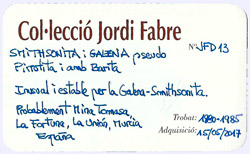 Col·lecció Jordi Fabre
Nº JFD13
SMITHSONITA i GALENA pseudo
Pirrotita i amb Barita
Inusual i estable per la Galena-Smithsonita.
Probablement Mina Tomasa,
La Fortuna, La Unión, Murcia
España
Trobat: 1980-1985
Adquisició: 15/05/2017